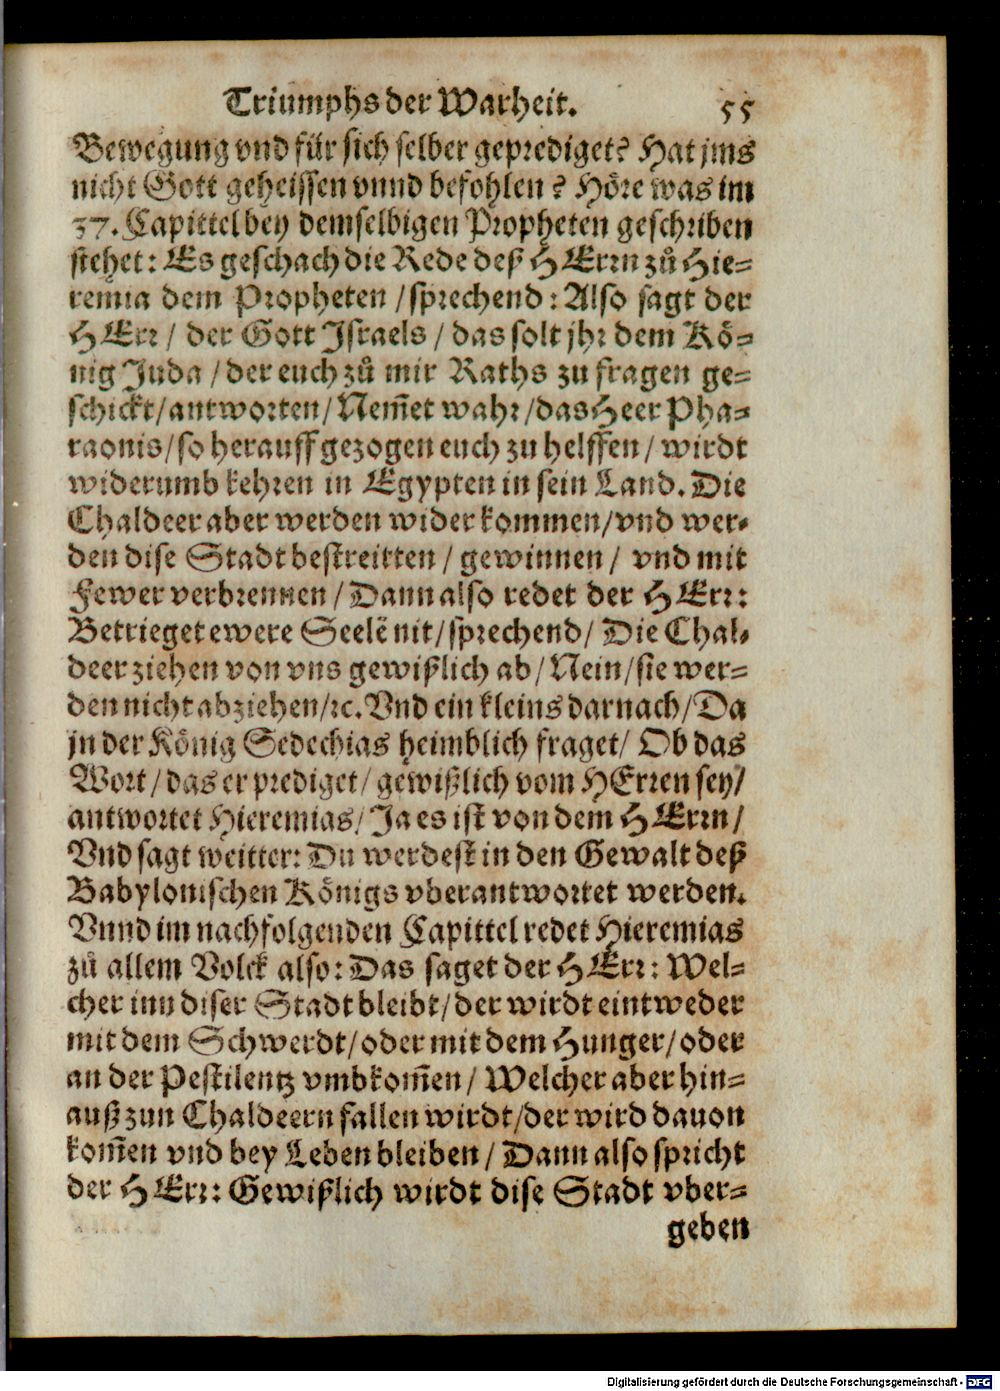 Triumphs der Warheit. 55
Bewegung vnd für sich selber geprediget? Hat jms
nicht Gott geheissen vnnd befohlen? Höre was im
37. Capittel bey demselbigen Propheten geschriben
stehet: Es geschach die Rede deß HErrn zů Hie-
remia dem Propheten / sprechend: Also sagt der
HErr / der Gott Israels / das solt jhr dem Kö-
nig Juda / der euch zů mir Raths zu fragen ge-
schickt / antworten / Nem̄et wahr / das Heer Pha-
raonis / so herauff gezogen euch zu helffen / wirdt
widerumb kehren in Egypten in sein Land. Die
Chaldeer aber werden wider kommen / vnd wer-
den dise Stadt bestreitten / gewinnen / vnd mit
Fewer verbrennen / Dann also redet der HErr:
Betrieget ewere Seelē nit / sprechend / Die Chal-
deer ziehen von vns gewißlich ab / Nein / sie wer-
den nicht abziehen / ꝛc. Vnd ein kleins darnach / Da
jn der König Sedechias heimblich fraget / Ob das
Wort / das er prediget / gewißlich vom HErren sey /
antwortet Hieremias / Ja es ist von dem HErrn /
Vnd sagt weitter: Du werdest in den Gewalt deß
Babylonischen Königs vberantwortet werden.
Vnnd im nachfolgenden Capittel redet Hieremias
zů allem Volck also: Das saget der HErr: Wel-
cher inn diser Stadt bleibt / der wirdt eintweder
mit dem Schwerdt / oder mit dem Hunger / oder
an der Pestilentz vmbkom̄en / Welcher aber hin-
auß zun Chaldeern fallen wirdt / der wird dauon
kom̄en vnd bey Leben bleiben / Dann also spricht
der HErr: Gewißlich wirdt dise Stadt vber-
geben
Digitalisierung gefördert durch die Deutsche Forschungsgemeinschaft - DFG